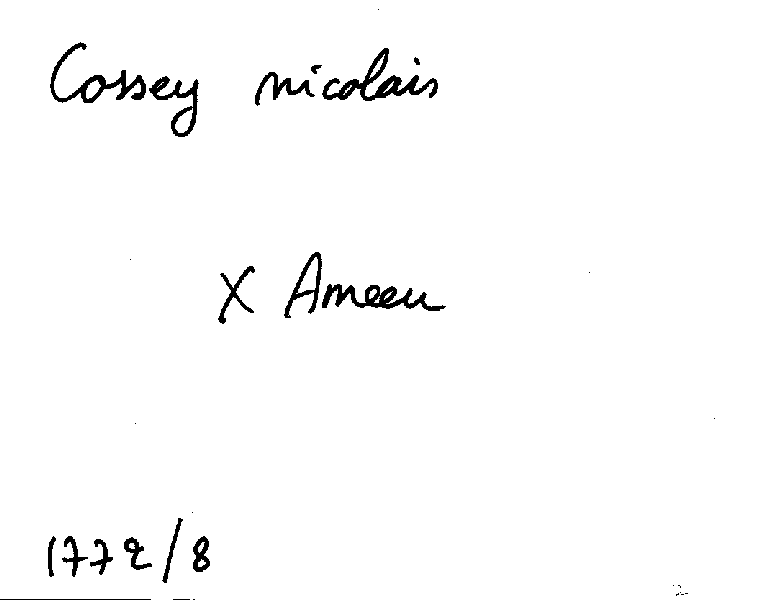 Cossey nicolais
X Ameeu
1772/8